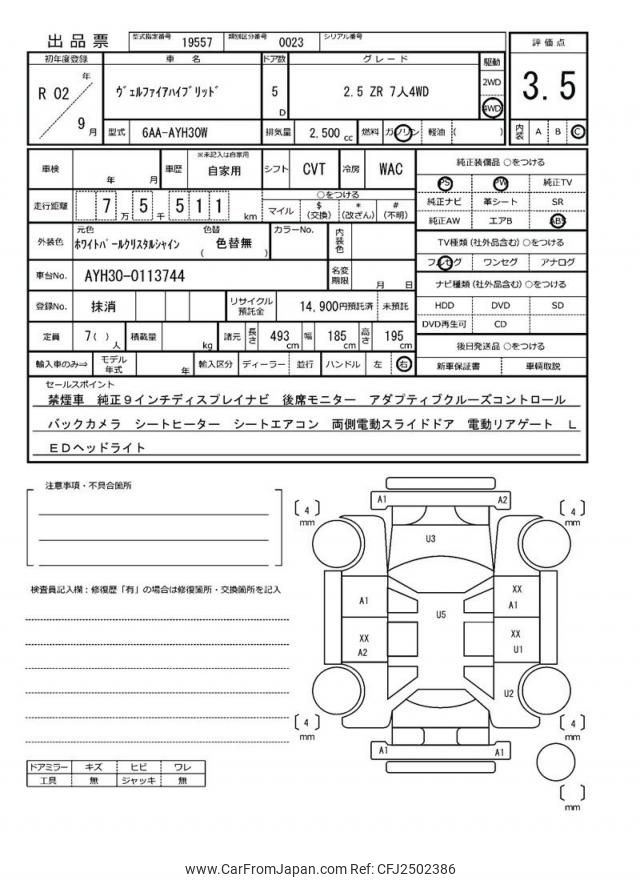 出品票 型式指定番号 19557 類別区分番号 0023 シリアル番号
初年度登録 車 名 ドア数 グレード 駆動 評価点
R 02 年 9 月 ヴェルファイアハイブリッド 5 D 2.5 ZR 7人4WD 2WD 4WD 3.5
型式 6AA-AYH30W 排気量 2,500 cc 燃料 ガソリン 軽油 ( ) 内装 A B C
車検 年 月 車歴 ※未記入は自家用 自家用 シフト CVT 冷房 WAC 純正装備品 ○をつける
PS PW 純正TV
走行距離 7 万 5 千 5 1 1 km ○をつける
マイル $ (交換) * (改ざん) # (不明) 純正ナビ 革シート SR
純正AW エアB ABS
外装色 元色 ホワイトパールクリスタルシャイン 色替 ( 色替無 ) カラーNo. 内装色 TV種類 (社外品含む) ○をつける
フルセグ ワンセグ アナログ
車台No. AYH30-0113744 名変期限 月 日 ナビ種類 (社外品含む) ○をつける
登録No. 抹消 リサイクル預託金 14,900円預託済 未預託 HDD DVD SD
DVD再生可 CD
定員 7( ) 人 積載量 kg 諸元 長さ 493 cm 幅 185 cm 高さ 195 cm 後日発送品 ○をつける
輸入車のみ⇒ モデル年式 年 輸入区分 ディーラー 並行 ハンドル 左 右 新車保証書 車輌取説
セールスポイント
禁煙車 純正9インチディスプレイナビ 後席モニター アダプティブクルーズコントロール
バックカメラ シートヒーター シートエアコン 両側電動スライドドア 電動リアゲート L
EDヘッドライト
注意事項・不具合箇所
検査員記入欄:修復歴「有」の場合は修復箇所・交換箇所を記入
A1 A2
〔 4 〕 mm 〔 4 〕 mm
U3
A1 XX A1
U5
XX A2 XX U1
U2
〔 4 〕 mm 〔 4 〕 mm
A1 A1
〔 〕 mm
ドアミラー キズ ヒビ ワレ
工具 無 ジャッキ 無
www.CarFromJapan.com Ref: CFJ2502386